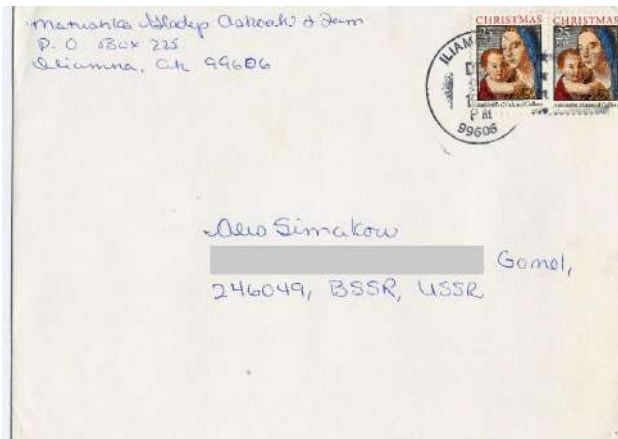 Gladys Askoak & Fam
P. O. Box 225
Iliamna, Ak 99606
CHRISTMAS CHRISTMAS
25 25
ILIAM
PM
99606
Simakow
Gomel,
246049, BSSR, USSR